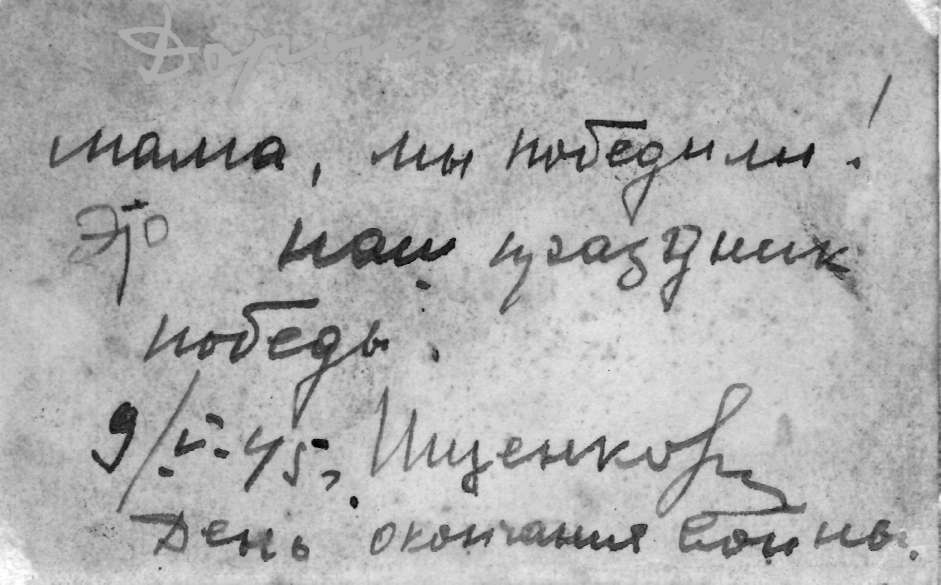 Дорогая
мама, мы победили!
Это наш праздник
победы.
9/V-45г. Ищенков
День окончания войны.